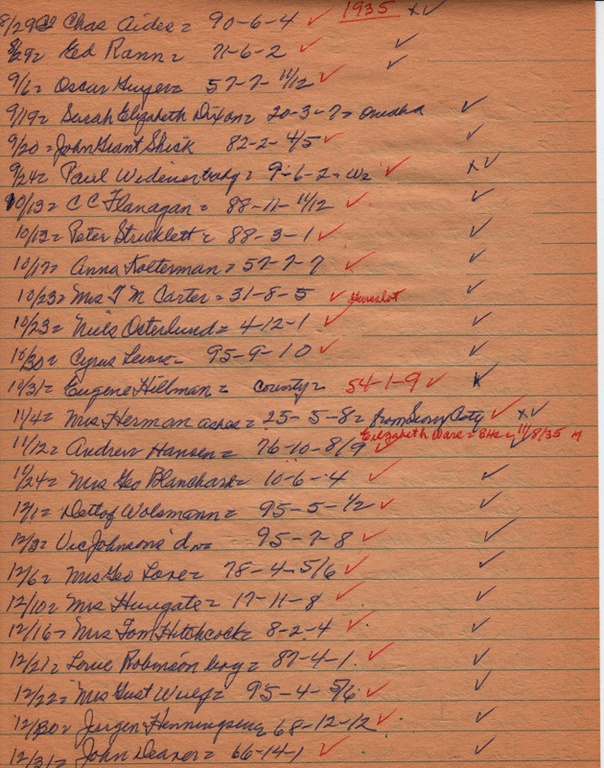 8/29= Chas Aides= 90-6-4 ✓ 1935 x✓
8/29= Ged Rann= 71-6-2 ✓ ✓
9/6= Oscar Guyer= 57-7-11/12 ✓ ✓
9/19= Sarah Elizabeth Dixon= 20-3-7= ✓
9/20= John Grant Shick 82-2-4/5 ✓ ✓
9/24= Paul = 9-6-2 ✓ x✓
10/13= C C Flanagan= 88-11-11/12 ✓ ✓
10/13= Peter Strucklett= 88-3-1 ✓ ✓
10/17= Anna Kolterman= 57-7-7 ✓ ✓
10/23= Mrs T M Carter= 31-8-5 ✓ ✓
10/23= Niels Osterlund= 4-12-1 ✓ ✓
10/30= Cyrus = 95-9-10 ✓ ✓
10/31= Eugene Hillman= County= 54-1-9 ✓ x
11/4= Mrs Herman ashes= 25-5-8= from City ✓ x✓
Elizabeth Ware = = 11/8/35 M
11/12= Andrew Hansen= 76-10-8/9 ✓ ✓
11/24= Mrs Geo Blanchard= 10-6-4 ✓ ✓
12/1= Detlof Wolsmann= 95-5-1/2 ✓ ✓
12/3= Vic Johnsons = 95-7-8 ✓ ✓
12/6= Mrs Geo Lore= 78-4-5/6 ✓ ✓
12/10= Mrs Hungate= 17-11-8 ✓ ✓
12/16= Mrs Tom Hitchcock= 8-2-4 ✓ ✓
12/21= Robinson boy= 87-4-1 ✓ ✓
12/22= Mrs Gust Wulf= 95-4-5/6 ✓ ✓
12/30= Jurgen Henningsen= 68-12-12 ✓ ✓
12/31= John Deaver= 66-14-1 ✓ ✓